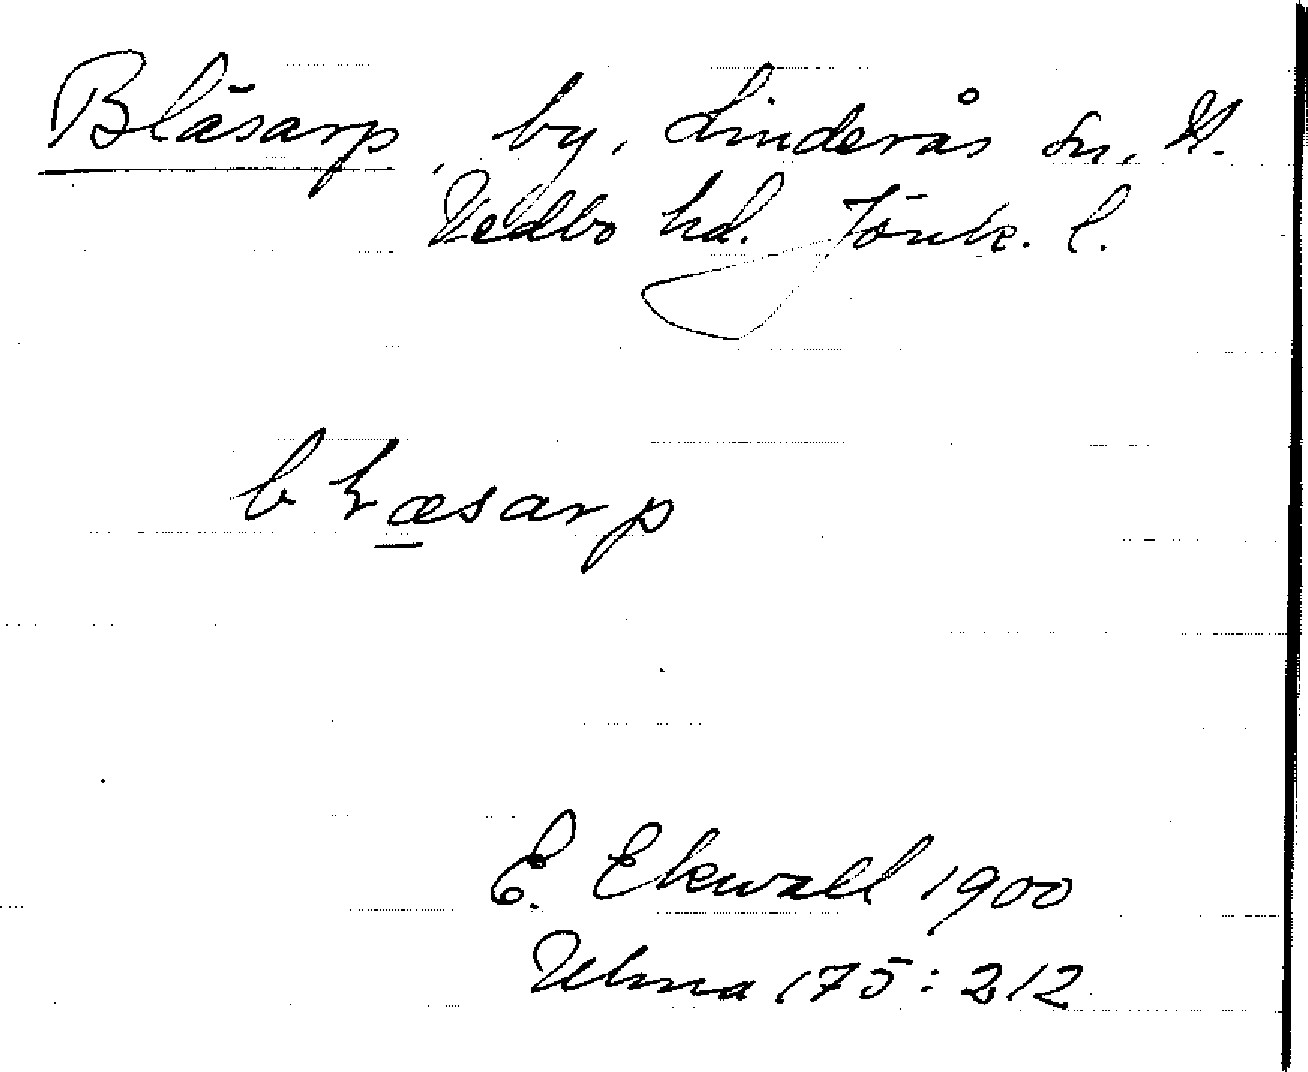 Bläsarp, by, Linderås sn, N.
Vedbo hd. Jönk. l.
bɫæsarp
E. Ekwall 1900
Ulma 175:212